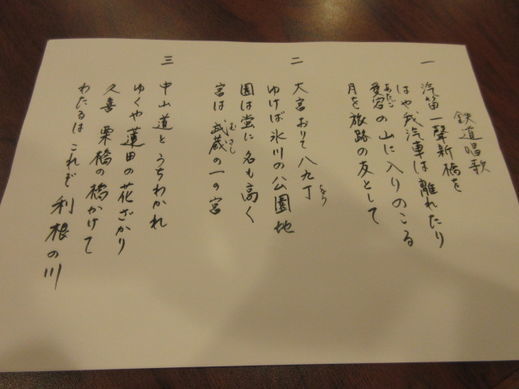 鉄道唱歌
一 汽笛一聲新橋を
はや我汽車は離れたり
愛宕の山に入りのこる
あたご
月を旅路の友として
二 大宮おりて八九丁
ゆけば氷川の公園地
園は蛍に名も高く
宮は武蔵の一の宮
むさし
三 中山道とうちわかれ
ゆくや蓮田の花ざかり
久喜 栗橋の橋かけて
わたるはこれぞ利根の川